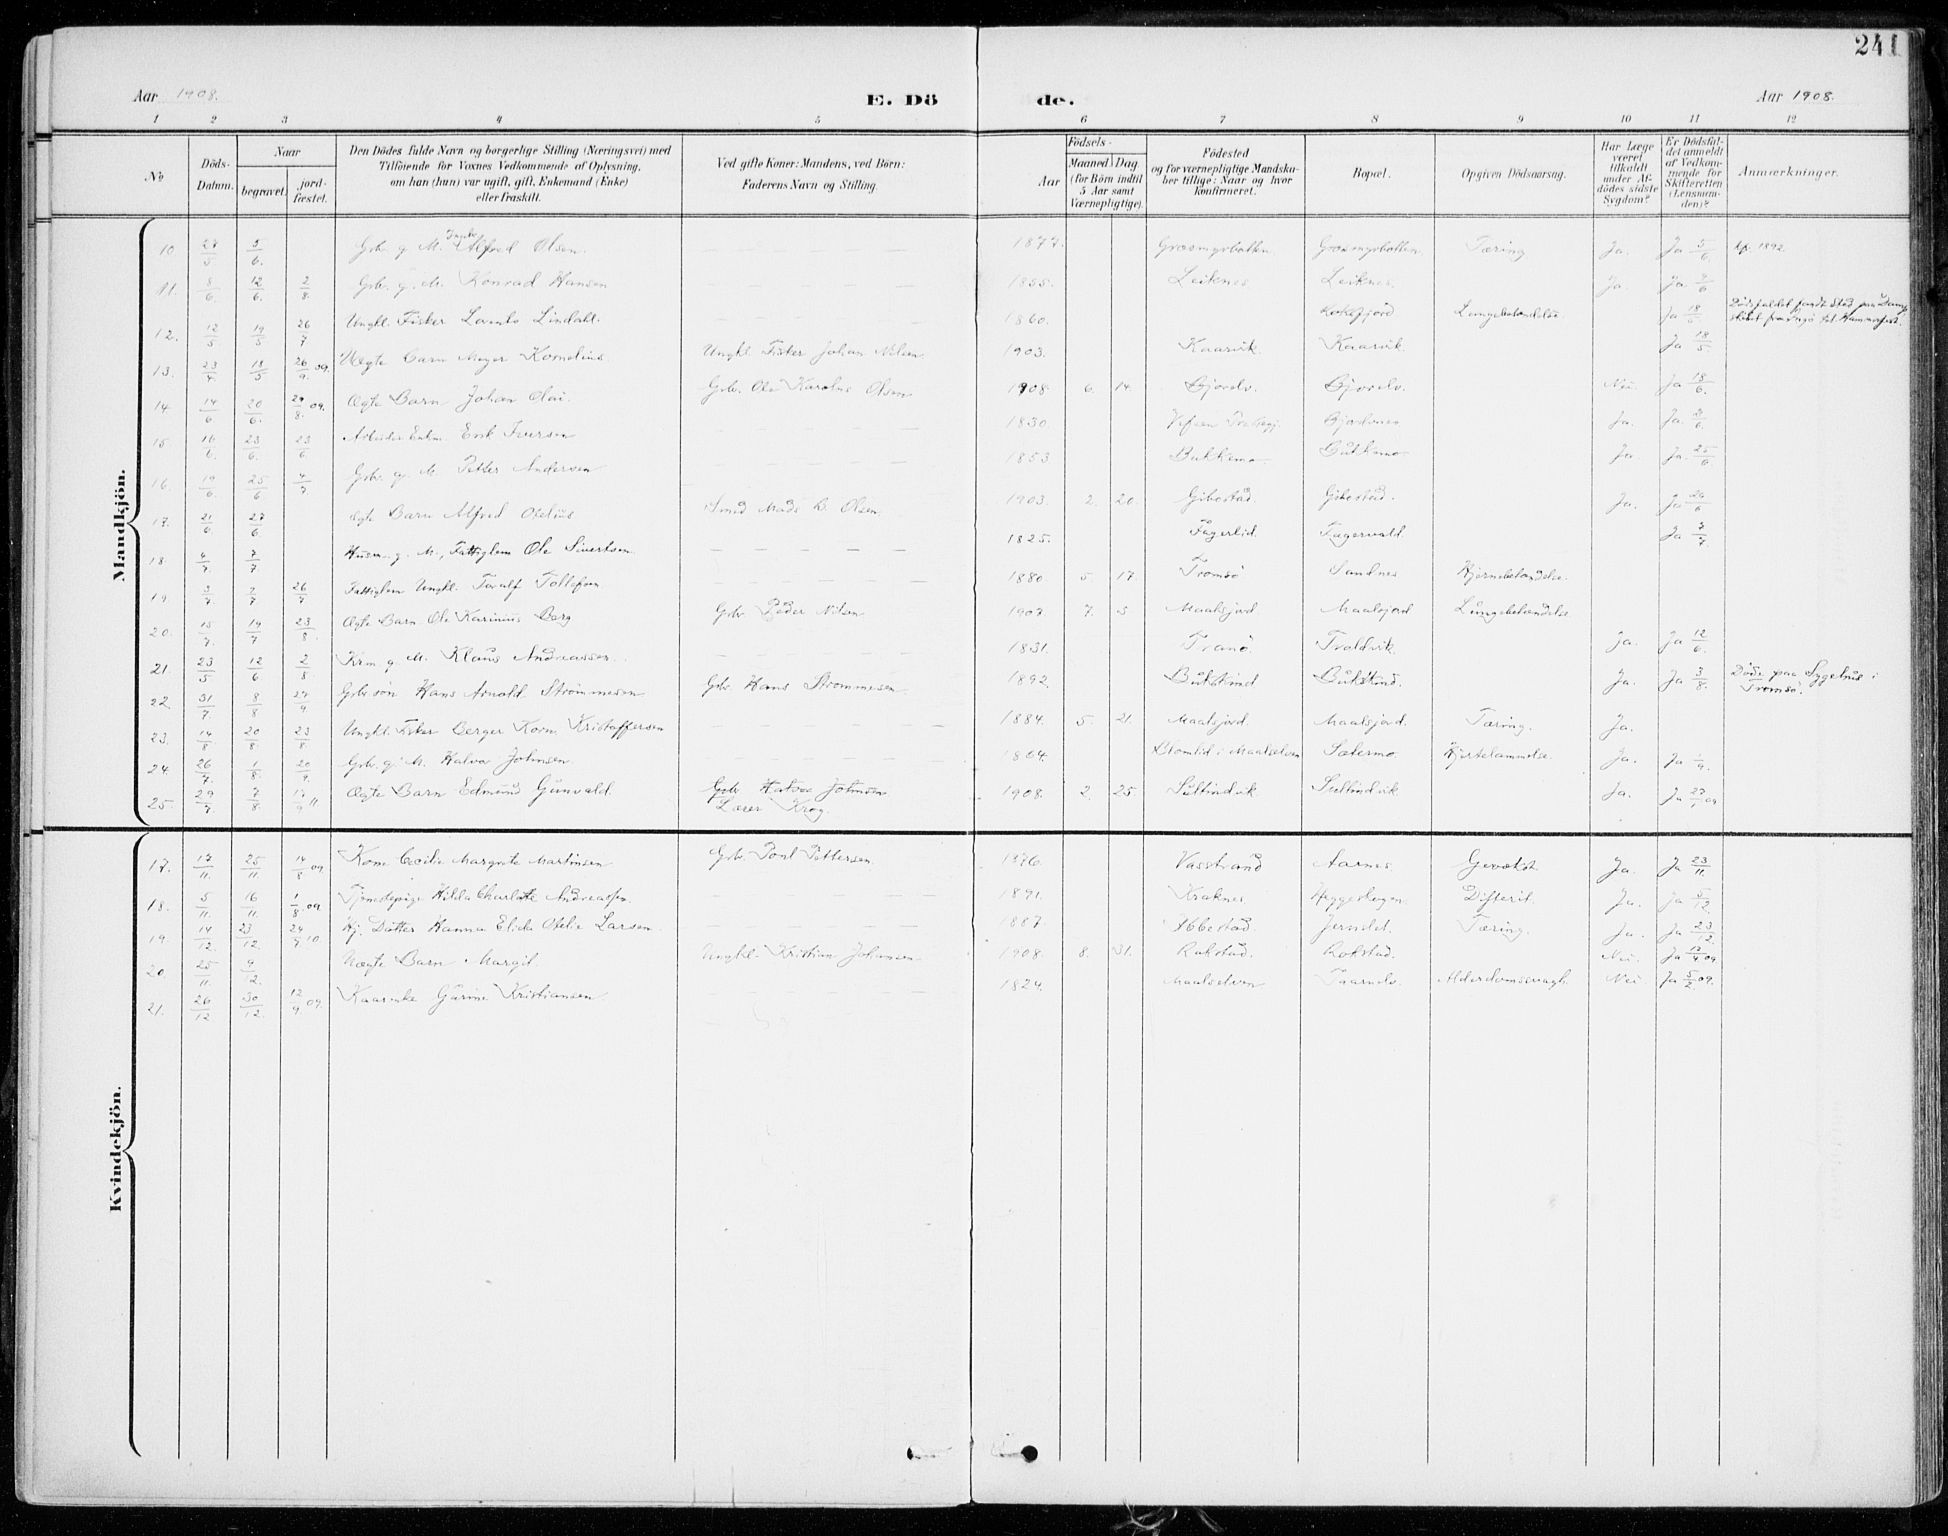 241
Aar 1908.
E. Dö
de.
Aar 1908.
1 2 3 4 5 6 7 8 9 10 11 12
No
Döds-Datum.
Naar
begravet.
jord-fæstet.
Den Dödes fulde Navn og borgerlige Stilling (Næringsvei) med
Tilföiende for Voxnes Vedkommende af Oplysning,
om han (hun) var ugift, gift, Enkemand (Enke)
eller fraskilt.
Ved gifte Koner: Mandens, ved Börn:
Faderens Navn og Stilling.
Födsels-
Aar
Maaned Dag
(for Börn indtil
5 Aar samt
Værnepligtige).
Födested
og for værnepligtige Mandska-
ber tillige: Naar og hvor
konfirmeret.
Bopæl.
Opgiven Dödsaarsag.
Har Læge
været
tilkaldt
under Af-
dödes sidste
Sygdom?
Er Dödsfal-
det anmeldt
af Vedkom-
mende for
Skifteretten
(Lensman-
den)?
Anmærkninger.
Mandkjön.
10 27/5 5/6. Gbr. g. M. Alfred Olsen. 1877. Græsmyrbotten. Græsmyrbotten Tæring Ja. Ja 5/6. 1892
11. 8/6 12/6. 2/8. Gbr. g. M. Konrad Hansen 1855. Leiknes Leiknes. Ja. Ja 9/6
12. 12/5 19/5 26/7 Ungkl. Fisker Lindahl. 1860. Kokefjord Lungebetændelse Ja 18/6 Dödsfaldet fandt Sted paa til Hammerfest.
13. 23/4 18/5 26/9 09. Uægte Barn Meyer Kornelius. Ungkl. Fisker Johan Nilsen 1903. Kaarvik. Kaarvik. Ja 18/5.
14. 14/6 20/6. 29/8. 09. Ægte Barn Johan Olai. Gbr. Ole Karolus Olsen 1908 6. 14. Gjövelv. Gjövelv. Nei. Ja 18/6.
15. 16/6. 23/6. 23/6 Arbeider Enkm. Erik Iversen 1830. Vefsen Gjövelvnes Ja. Ja. 9/6.
16. 19/6 25/6 4/7 Gbr. g. M. Petter Andersen 1853 Bukkemo Bukkemo Ja. Ja. 25/6
17. 21/6 27/6. Ægte Barn Alfred Otelius Smed Mads B. Olsen 1903. 2. 20. Gibostad Gibostad. Ja. Ja 26/6
18. 4/7. 7/7 Husm. g. M., Fattiglem Ole Sivertsen 1825. Fagerlid. Fagervold. Ja 7/7
19. 3/7 9/7 26/7 Fattiglem Ungkl. Toralf Tollefsen 1880. 5. 17. Tromsö Sandnes Hjernebetændelse.
20. 15/7. 19/7 23/8. Ægte Barn Ole Karinius Berg Gbr. Peder Nilsen 1907. 7. 5 Maalsjord Maalsjord Lungebetændelse
21. 23/5 12/6 2/8 Krm g. M. Klaus Andreassen. 1831. Tranö. Troldvik. Ja. Ja 12/6.
22. 31/7. 8/8 27/9 Gbr. sön Hans Arnold Strömmesen Gbr. Hans Strömmesen 1892. Bukskind Bukskind. Ja. Ja 3/8. Döde paa Sygehus i Tromsö.
23. 14/8 20/8. 23/8. Ungkl. Fisker Berger Korn. Kristoffersen 1884. 5. 21. Maalsjord. Maalsjord. Tæring. Ja.
24. 26/7. 1/8. 20/9. Gbr. g. M. Halvor Johnsen. 1864. i Maalselven Sætermo Hjertelammelse. Ja. Ja 1/9.
25. 29/7 7/8 17/9 " Ægte Barn Edmund Gunvald. Gbr Johnsen
Lærer Krog. 1908. 2. 25 Sultindvik Sultindvik. Ja. Ja 27/1 09
Kvindekjön.
17. 17/11. 25/11. 14/8 09. Kone Cecilie Margrete Martinsen Gbr. Poul Pettersen. 1876. Vasstrand Aarnes Gevækst Ja. Ja 23/11.
18. 5/11. 16/11. 1/8 09. Tjenestepige Hilda Charlotte Andreassen. 1891. Kraknes Heggeskogen Difterit. Ja. Ja 5/12.
19. 14/12. 23/12. 24/7 10. Hj. Datter Hanna Elida Otelie Larsen. 1887. Ibbestad. Jernslet. Tæring. Ja. Ja 23/12.
20. 25/11. 9/12. Uægte Barn Margit. Ungkl. Kristian Johansen 1908. 8. 31. Rokstad. Rokstad. Nei. Ja 12/4 09.
21. 26/12 30/12. 12/9. 09. Kaarenke Gurine Kristiansen. 1824. Maalselven Taarnelv. Alderdomssvagh. Nei Ja 5/2. 09.